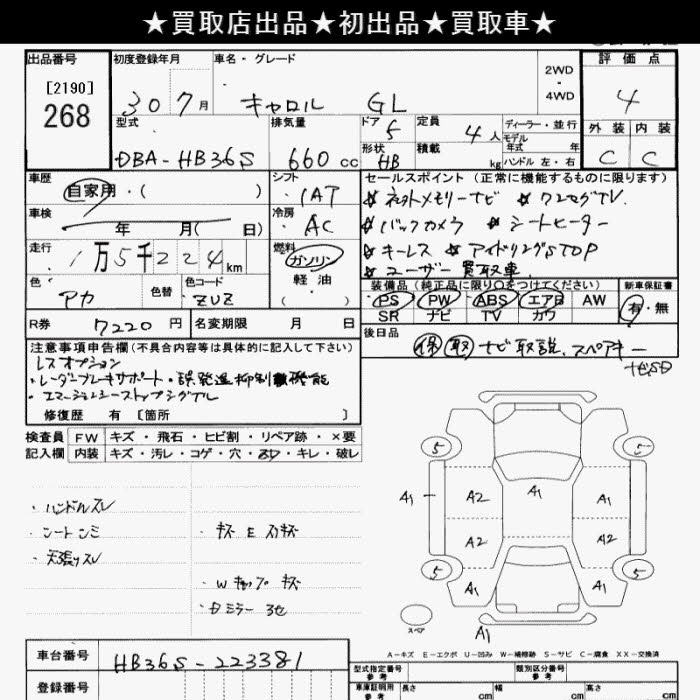 ★買取店出品★初出品★買取車★
出品番号 初度登録年月 車名・グレード 評価点
[2190]
268
30 7月 キャロル GL 2WD・4WD 4
型式 排気量 ドア 5 定員 4人 ディーラー・並行 外装 内装
モデル年式 年
DBA-HB36S 660cc 形状 HB 積載 kg ハンドル 左・右 C C
車歴 シフト セールスポイント(正常に機能するものに限ります)
自家用・( ) IAT ☆ネットメモリーナビ ☆ワンセグTV.
車検 冷房 ☆バックカメラ ☆シートヒーター
年 月(日) AC ☆キーレス ☆アイドリングSTOP
走行 燃料 ☆ユーザー買取車
1万5千224km ガソリン 装備品(純正品に限り○をつけてください) 新車保証書
色 色替 色コード 軽油 PS PW ABS エアB AW 有・無
アカ ZUZ ( ) SR ナビ TV カワ
R券 7220円 名変期限 月 日 後日品
保 取 ナビ取説、スペアキー
ナビSD
注意事項申告欄(不具合内容等は具体的に記入して下さい)
レスオプション
・レーダーブレーキサポート・誤発進抑制機能
・エマージェンシーストップシグナル
修復歴 有 [箇所 ]
検査員 FW キズ・飛石・ヒビ割・リペア跡・×要
記入欄 内装 キズ・汚レ・コゲ・穴・スレ・キレ・破レ
・ハンドルスレ
・シートシミ
・キズ E スリキズ
・天張りスレ
・Wキップ キズ
・Dミラー
5 5
A1 A2 A1 A1
A2 A2
5 5
A1 A1
スペア
A1
A-キズ E-エクボ U-凹み W-補修跡 S-サビ C-腐食 XX-交換済
車台番号 HB36S-223381 型式指定番号 参考 類別区分番号 参考
登録番号 車庫証明用 参考 長さ cm 幅 cm 高さ cm